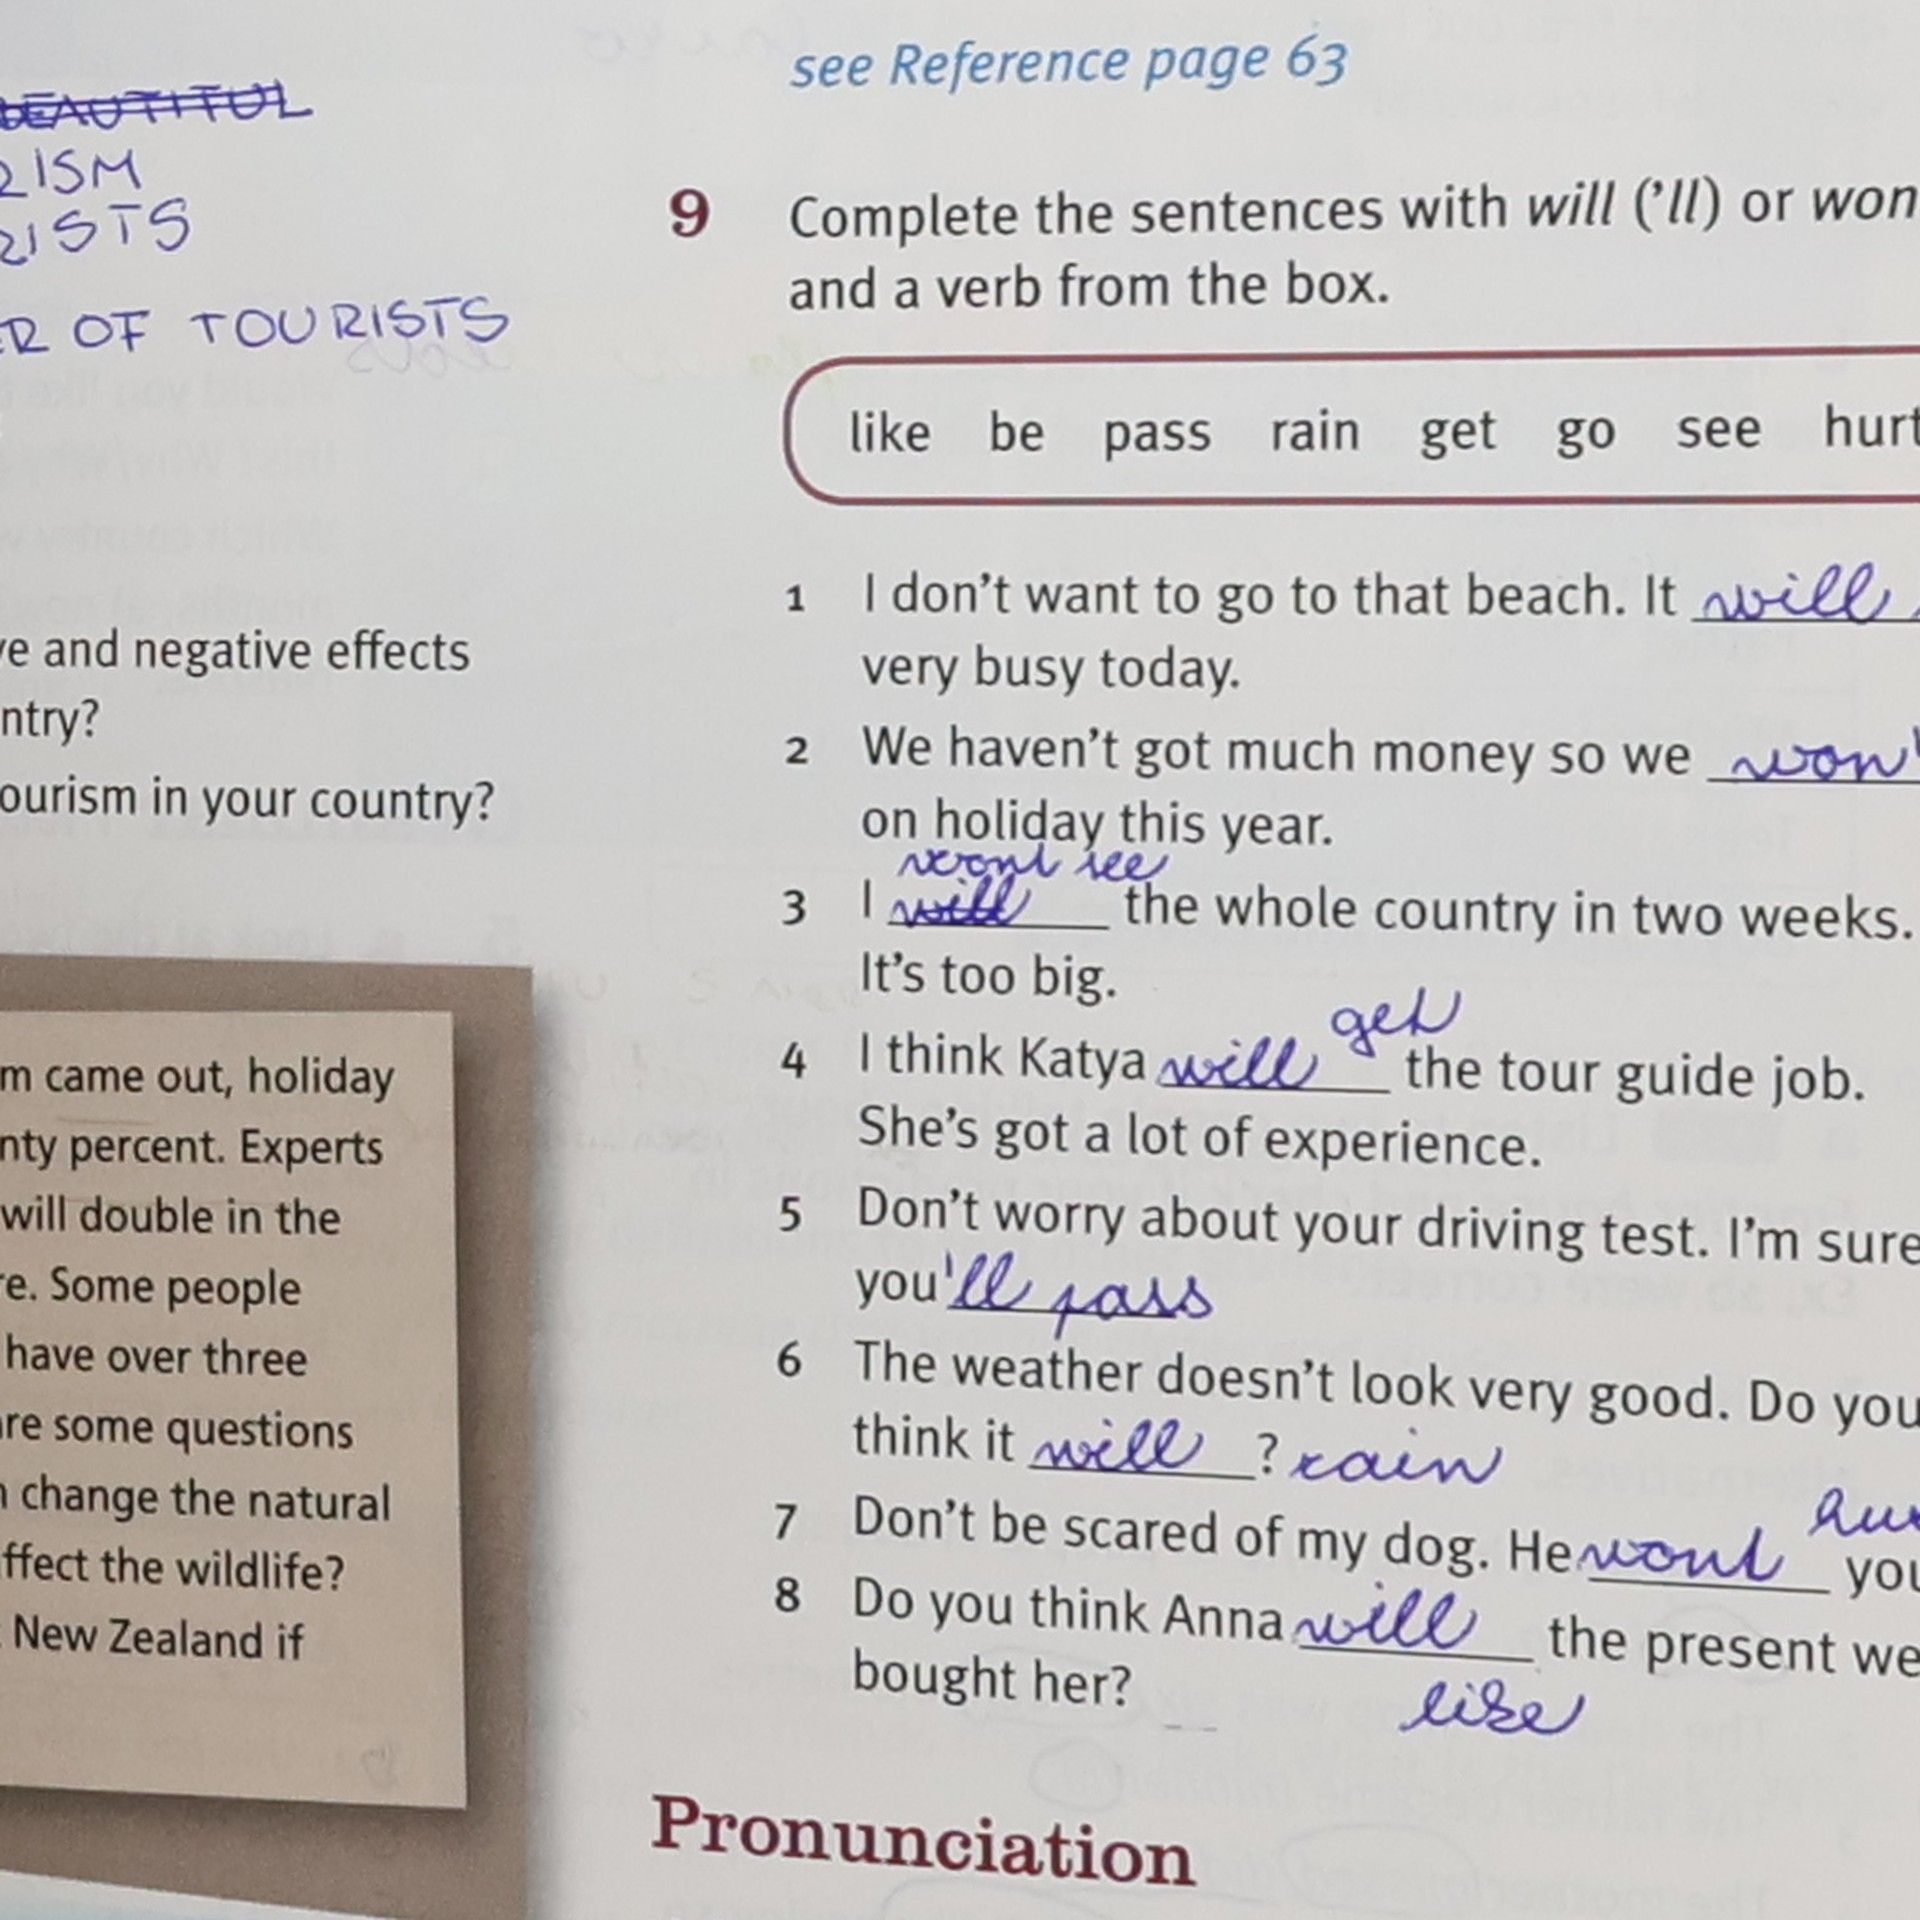 BEAUTITUL
RISM
RISTS
ER OF TOURISTS
ve and negative effects
ntry?
ourism in your country?
m came out, holiday
nty percent. Experts
will double in the
re. Some people
have over three
are some questions
n change the natural
ffect the wildlife?
New Zealand if
see Reference page 63
9 Complete the sentences with will ('ll) or won
and a verb from the box.
like be pass rain get go see hurt
1 I don't want to go to that beach. It will
very busy today.
2 We haven't got much money so we won'
on holiday this year.
wont see
3 I will the whole country in two weeks.
It's too big.
get
4 I think Katya will the tour guide job.
She's got a lot of experience.
5 Don't worry about your driving test. I'm sure
you'll pass
6 The weather doesn't look very good. Do you
think it will ? rain
hur
7 Don't be scared of my dog. He wont you
8 Do you think Anna will the present we
bought her?
like
Pronunciation